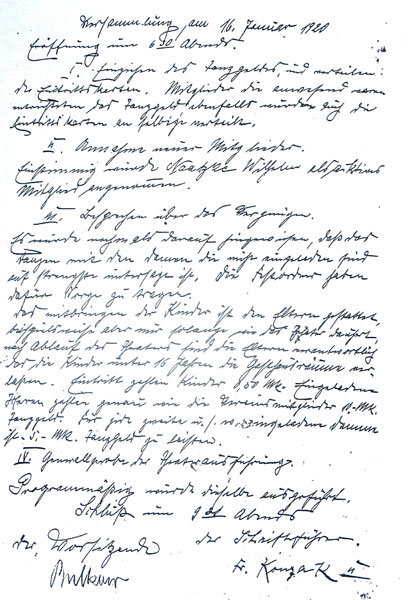 Versammlung, am 16. Januar 1920
Eröffnung um 6 30 Abends.
I. Einziehen des Tanzgeldes, und verteilen
der Eintrittskarten. Mitglieder die anwesend waren
entrichteten das Tanzgeld ebenfalls wurden auch die
Eintrittskarten an selbige verteilt.
II. Annahme neuer Mitglieder.
Einstimmig wurde Naatzke Wilhelm als aktives
Mitglied angenommen.
III. Besprechen über das Vergnügen.
Es wurde nochmals darauf hingewiesen, daß das
Tanzen mit den Damen die nicht eingeladen sind
auf strengste untersagt ist. Die Festordner haben
dafür Sorge zu tragen.
Das mitbringen der Kinder ist den Eltern gestattet,
aber nur solange wie das Theater dauert,
nach Ablauf des Theaters sind die Eltern verantwortlich
das die Kinder unter 16 Jahren die Geschäftsräume ver-
lassen. Eintritt zahlen Kinder 0,50 Mk. Eingeladene
Herren zahlen genau wie die Vereinsmitglieder Mk.
Tanzgeld. Für jede zweite u.s.w. eingeladene Damme
ist Mk. Tanzgeld zu leisten.
IV Generalprobe der Theateraufführung.
Programmäßig wurde dieselbe ausgeführt.
Schluß um 9 Abends
der Vorsitzende der Schriftführer.
Fr. Konzak II